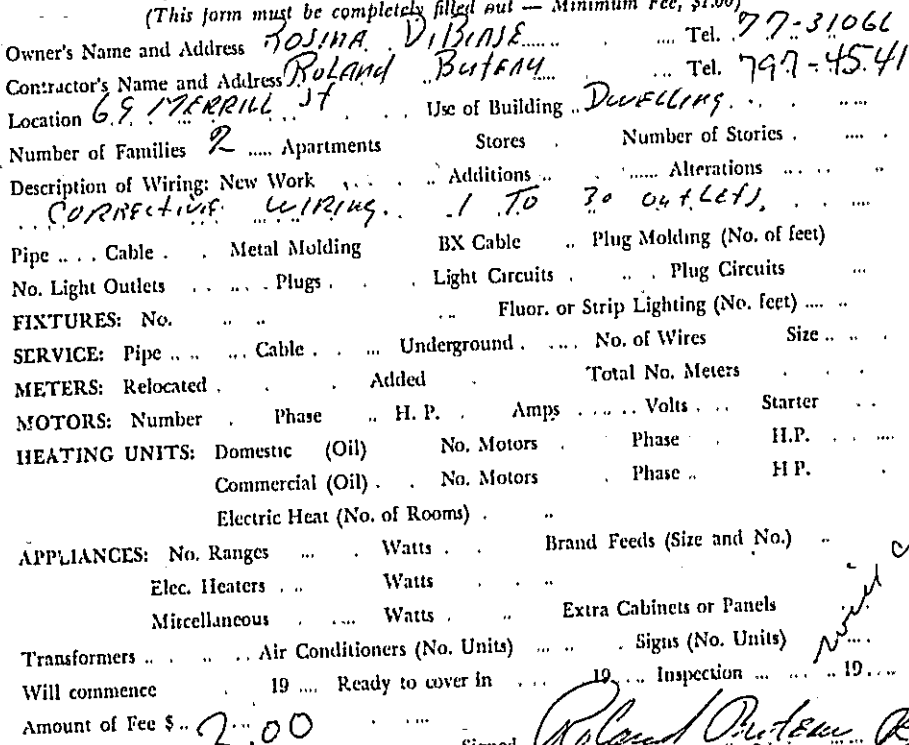 (This form must be completely filled out — Minimum Fee, $1.00)
Owner's Name and Address ROSINA DiBIASE Tel. 77-31066
Contractor's Name and Address ROLAND Tel. 797-4541
Location 69 MERRILL ST Use of Building DWELLING
Number of Families 2 Apartments Stores Number of Stories
Description of Wiring: New Work Additions Alterations
CORRECTIVE WIRING. 1 TO 30 OUTLETS,
Pipe Cable Metal Molding BX Cable Plug Molding (No. of feet)
No. Light Outlets Plugs Light Circuits Plug Circuits
FIXTURES: No. Fluor. or Strip Lighting (No. feet)
SERVICE: Pipe Cable Underground No. of Wires Size
METERS: Relocated Added Total No. Meters
MOTORS: Number Phase H. P. Amps Volts Starter
HEATING UNITS: Domestic (Oil) No. Motors Phase H.P.
Commercial (Oil) No. Motors Phase H P.
Electric Heat (No. of Rooms)
APPLIANCES: No. Ranges Watts Brand Feeds (Size and No.)
Elec. Heaters Watts
Miscellaneous Watts Extra Cabinets or Panels
Transformers Air Conditioners (No. Units) Signs (No. Units)
Will commence 19 Ready to cover in 19 Inspection 19
Amount of Fee $ 2.00
Signed Roland